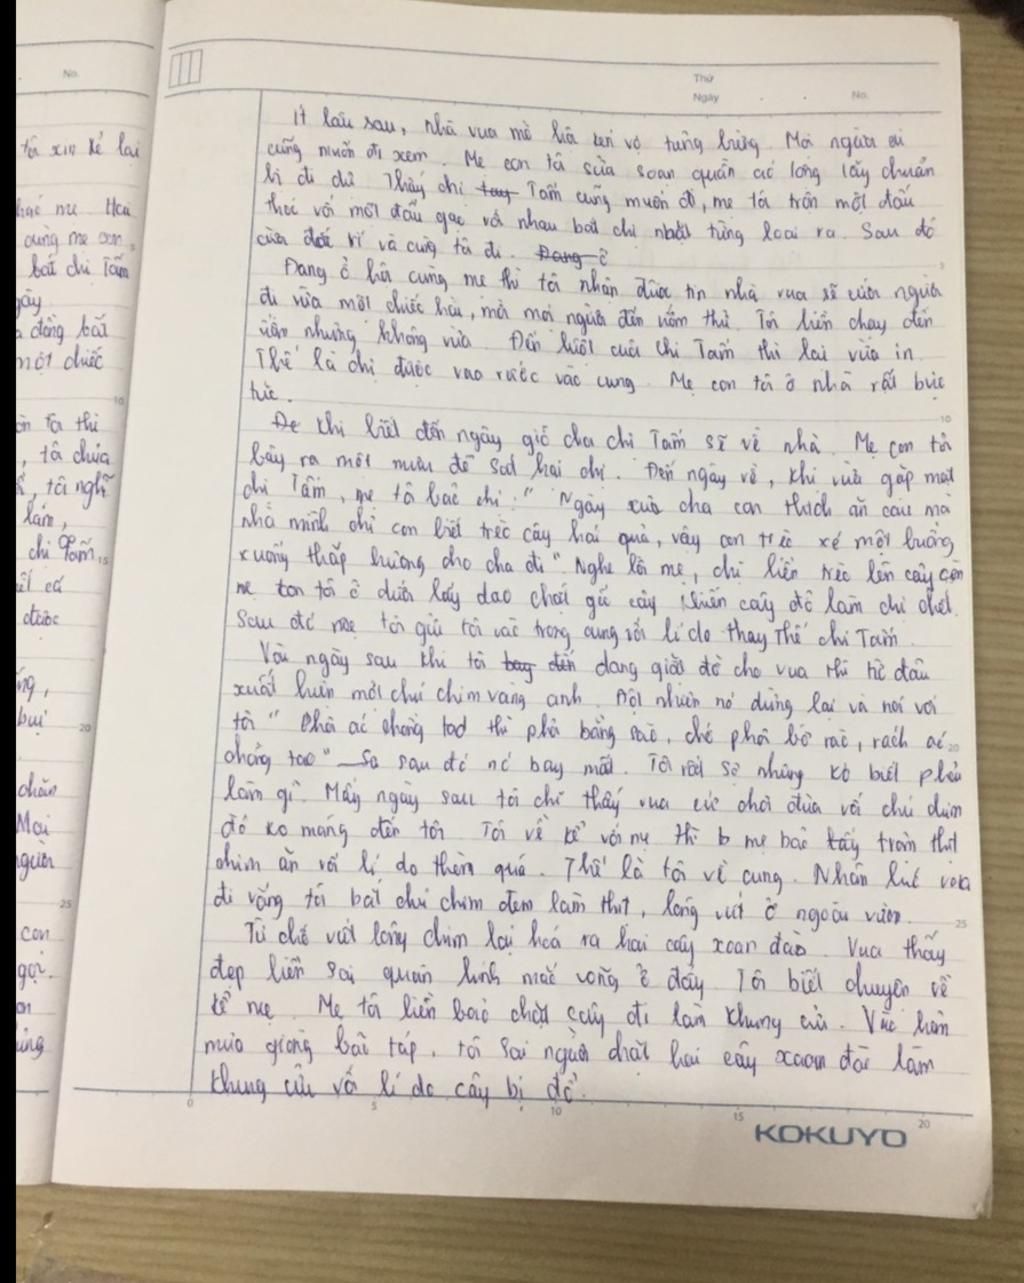 No.
Thứ
Ngày
No.
tôi xin kể lại
mẹ Hoa
cùng mẹ con,
bắt chị Tấm
một chiếc
tôi thì
, tôi chưa
, tôi nghĩ
lắm,
chị Tấm
được
bụi
chăn
Mọi
người
con
gọi.
Ít lâu sau, nhà vua mở hội tưng bừng. Mọi người ai
cũng muốn đi xem. Mẹ con tôi sửa soạn quần áo lộng lẫy chuẩn
bị đi dự Thấy chị Tấm cũng muốn đi, mẹ tôi trộn một đấu
thóc với một đấu gạo với nhau bắt chị nhặt từng loại ra. Sau đó
và cùng tôi đi. Đang ở
Đang ở hội cùng mẹ thì tôi nhận được tin nhà vua sẽ cưới người
đi vừa một chiếc hài, mà mọi người đến ướm thử. Tôi liền chạy đến
nhưng không vừa. Đến lượt của chị Tấm thì lại vừa in.
Thế là chị được vào rước vào cung. Mẹ con tôi ở nhà rất bực
tức.
khi biết đến ngày giỗ cha chị Tấm sẽ về nhà. Mẹ con tôi
bày ra một mưu để sát hại chị. Đến ngày về, khi vừa gặp mặt
chị Tấm, mẹ tôi bảo chị: " Ngày xưa cha con thích ăn cau mà
nhà mình chỉ con biết trèo cây hái quả, vậy con trèo xé một buồng
xuống thắp hương cho cha đi" Nghe lời mẹ, chị liền trèo lên cây còn
mẹ con tôi ở dưới lấy dao chặt gốc cây khiến cây đổ làm chị chết.
Sau đó mẹ tôi gửi tôi vào trong cung với lí do thay thế chị Tấm.
Vài ngày sau khi tôi đang giặt đồ cho vua thì từ đâu
xuất hiện một chú chim vàng anh. Đột nhiên nó dừng lại và nói với
tôi " Phơi áo chồng tao thì phơi bằng sào, chớ phơi bờ rào, rách áo
chồng tao" So sau đó nó bay mất. Tôi rất sợ nhưng ko biết phải
làm gì. Mấy ngày sau tôi chỉ thấy vua cứ chơi đùa với chú chim
đó ko màng đến tôi. Tôi về kể với mẹ thì b mẹ bảo trộm thịt
chim ăn với lí do thèm quá. Thế là tôi về cung. Nhân lúc vua
đi vắng tôi bắt chú chim đem làm thịt, lông vứt ở ngoài vườn.
Từ chỗ vứt lông chim lại hoá ra hai cây xoan đào. Vua thấy
đẹp liền sai quân lính mắc võng ở đấy. Tôi biết chuyện về
kể mẹ. Mẹ tôi liền bảo chặt cây đi làm khung cửi. Vào hôm
mưa giông bão táp, tôi sai người chặt hai cây xoan đào làm
khung cửi với lí do cây bị đổ.
5
10
15
20
25
10
15
20
25
0
5
10
15
20
KOKUYO